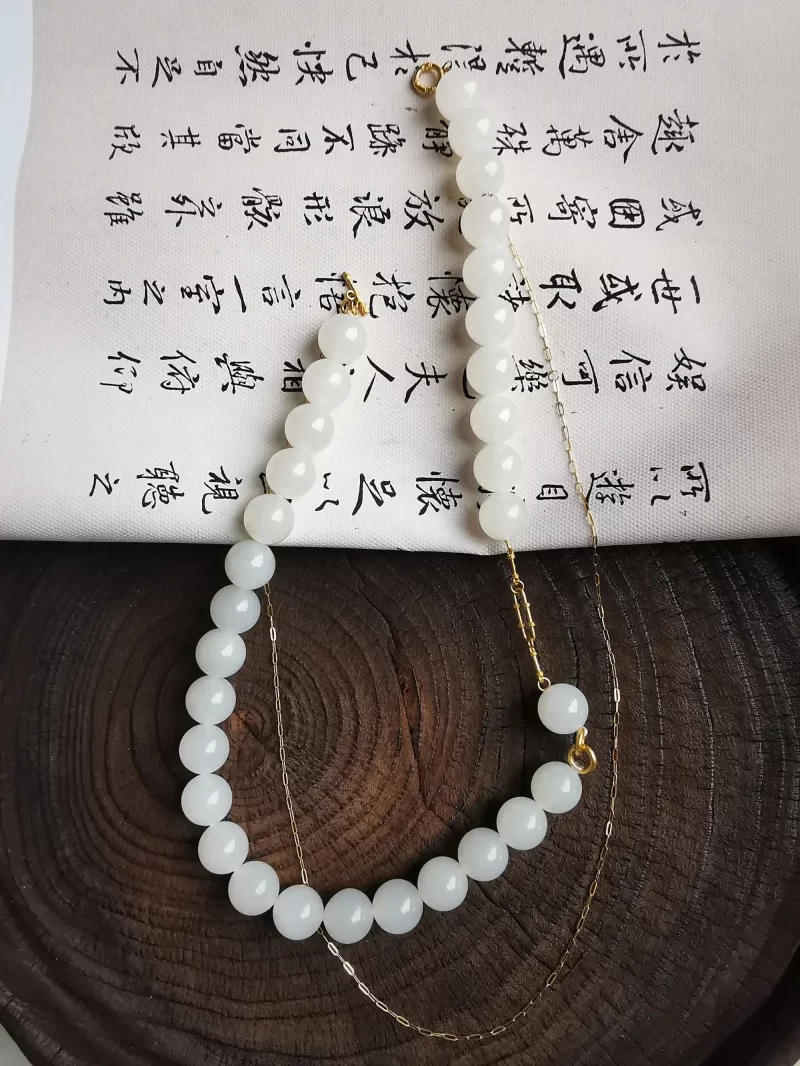 所以遊目懷足以視聽之
娛信可樂也夫人相與俯仰
一世或取諸懷抱悟言一室之內
或因寄所放浪形骸之外雖
趣舍萬殊靜躁不同當其欣
於所遇暫得於己快然自足不